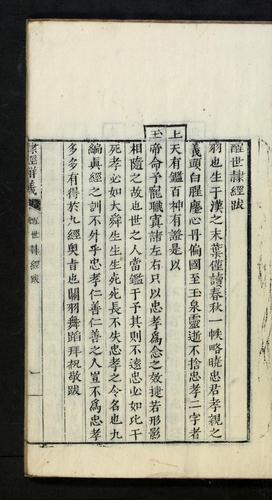 醒世隸經跋
羽也生于漢之末葉僅讀春秋一帙略曉忠君孝親之
義頭白腥塵心丹偏國至玉泉靈逝不捨忠孝二字者
上天有鑑百神有證是以
玉帝命予寵職真諸左右只以忠孝爲念之效捷若形影
相隨之故也世之人當鑑于予其則不遠忠必如比干
死孝必如大舜生生生死死長不失忠孝之令名也九
編眞經之訓不外乎忠孝仁善仁善之人豈不爲忠孝
多多有得於九經奧旨也關羽舞蹈拜祝敬跋
醒世隸經跋
一